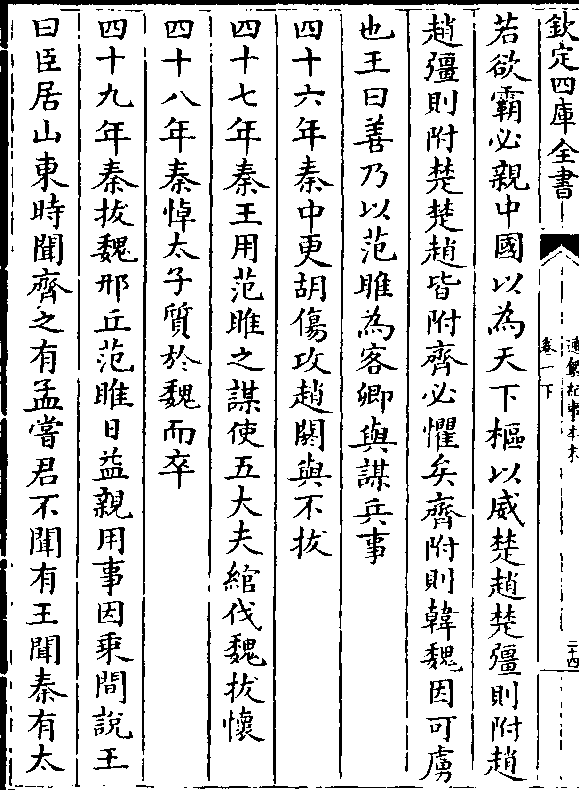 欽定四庫全書
通鑑紀事本末
卷一下
二十四
若欲霸必親中國以為天下樞以威楚趙楚彊則附趙
趙彊則附楚楚趙皆附齊必懼矣齊附則韓魏因可虜
也王曰善乃以范雎為客卿與謀兵事
四十六年秦中更胡傷攻趙閼與不拔
四十七年秦王用范雎之謀使五大夫綰伐魏拔懷
四十八年秦悼太子質於魏而卒
四十九年秦拔魏邢丘范雎日益親用事因乘間說王
曰臣居山東時聞齊之有孟嘗君不聞有王聞秦有太